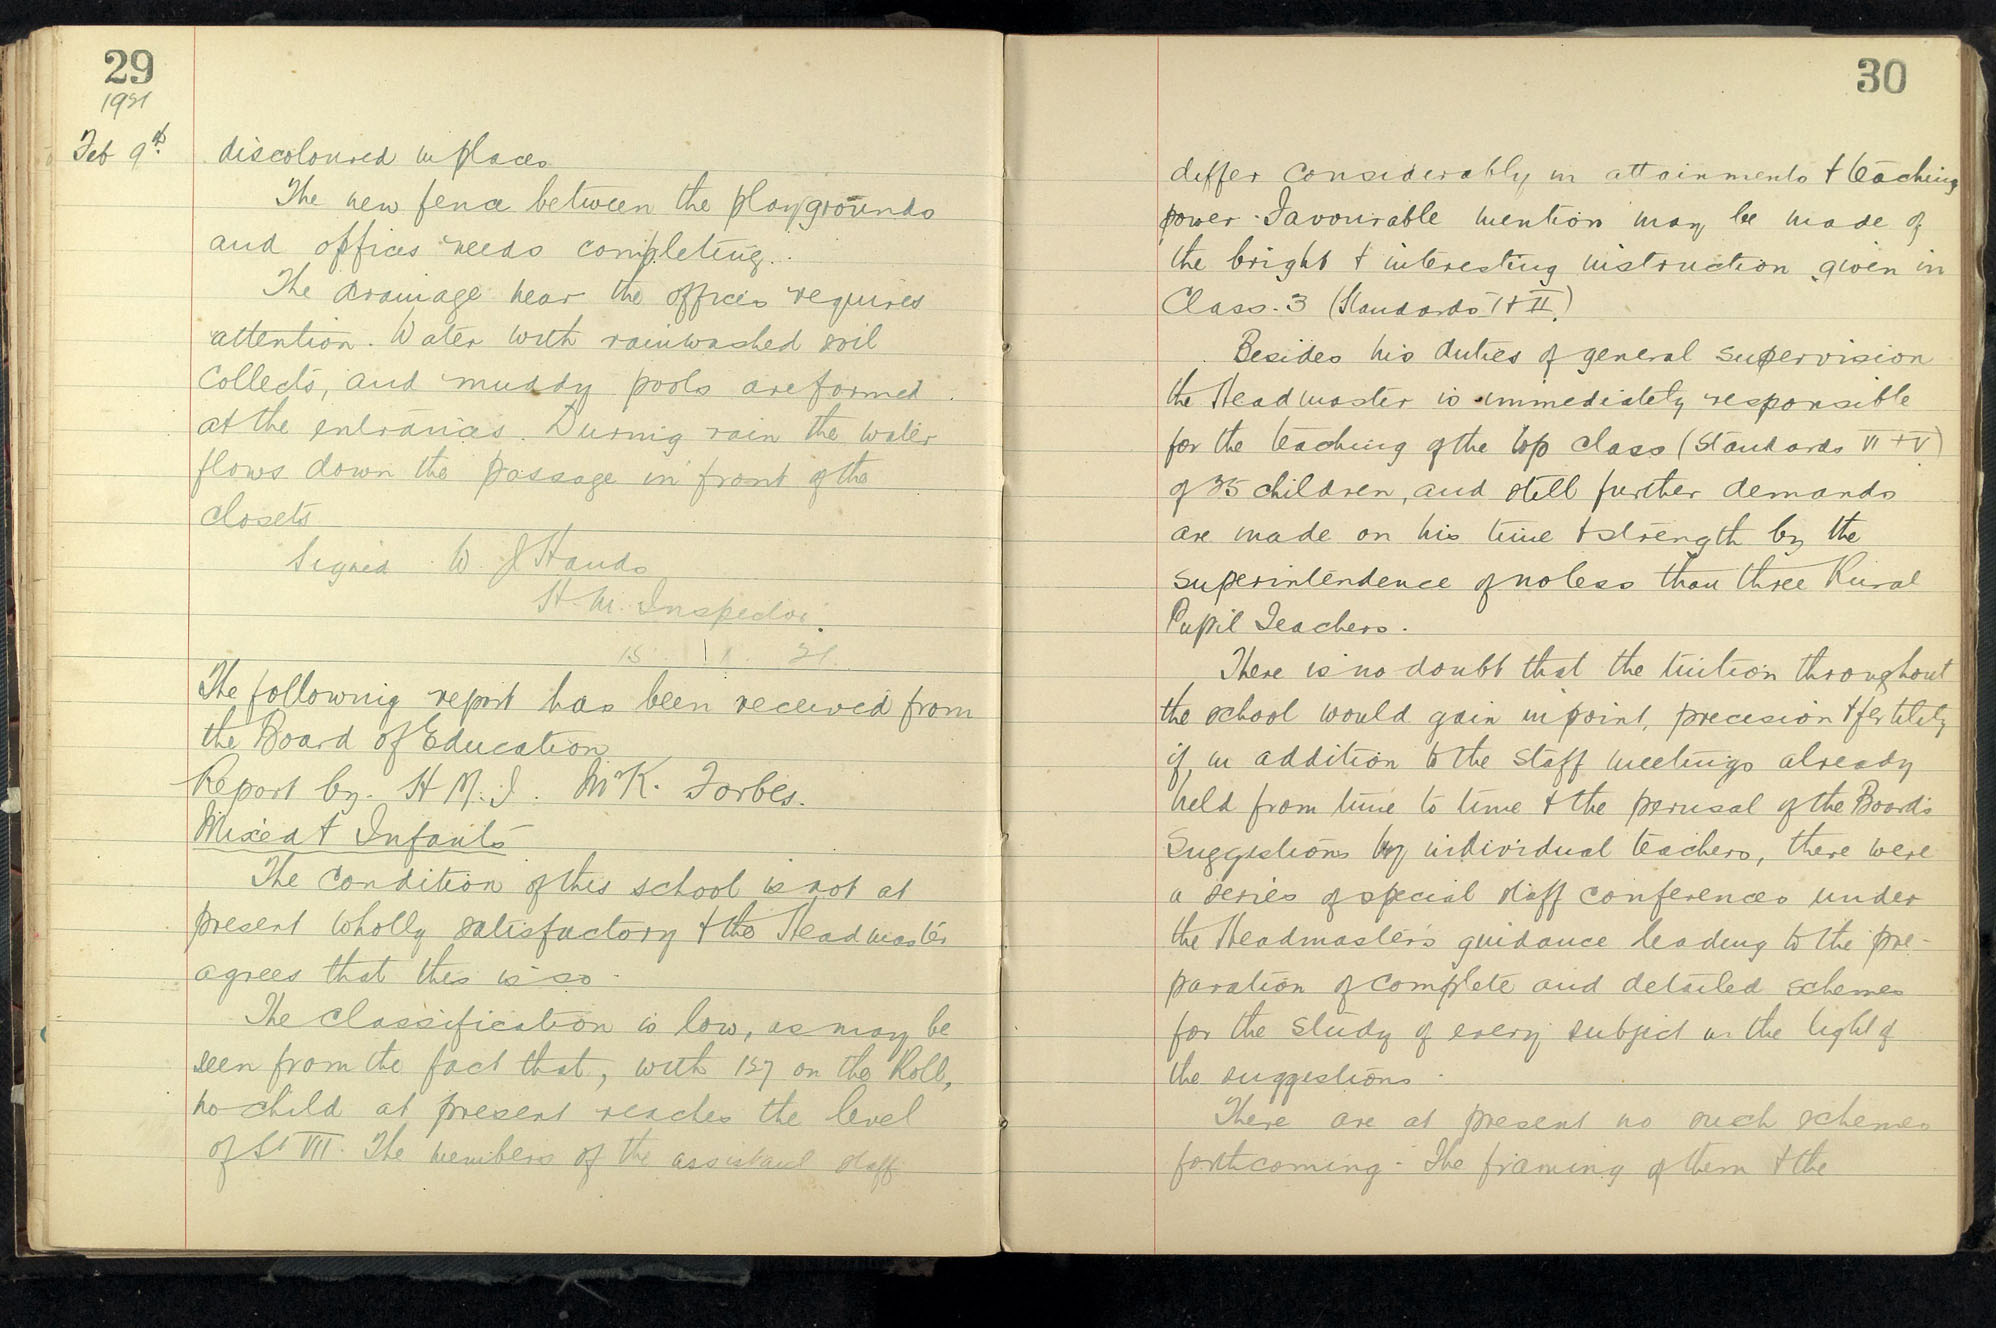 29
1921
Feb 9th
discoloured in places
The new fence between the playgrounds
and offices needs completing.
The drainage near the offices requires
attention. Water with rainwashed soil
collects, and muddy pools are formed
at the entrances. During rain the water
flows down the passage in front of the
closets
Signed W. J Hands
H. M. Inspector.
15 1 21
The following report has been received from
the Board of Education
Report by. H M. I. McK. Forbes.
Mixed & Infants
The condition of this school is not at
present wholly satisfactory & the Headmaster
agrees that this is so.
The classification is low, as may be
seen from the fact that, with 127 on the Roll,
no child at present reaches the level
of St VII. The members of the assistant staff
30
differ considerably in attainments & teaching
power. Favourable mention may be made of
the bright & interesting instruction given in
Class. 3 (Standards I & II.)
Besides his duties of general supervision
the Headmaster is immediately responsible
for the teaching of the top class (Standards VI + V)
of 35 children, and still further demands
are made on his time & strength by the
superintendence of no less than three Rural
Pupil Teachers.
There is no doubt that the tuition throughout
the school would gain in point, precision & fertility
if, in addition to the staff meetings already
held from time to time & the perusal of the Board's
Suggestions by individual teachers, there were
a series of special staff conferences under
the Headmaster's guidance leading to the pre-
paration of complete and detailed schemes
for the study of every subject in the light of
the suggestions.
There are at present no such schemes
forthcoming. The framing of them & the